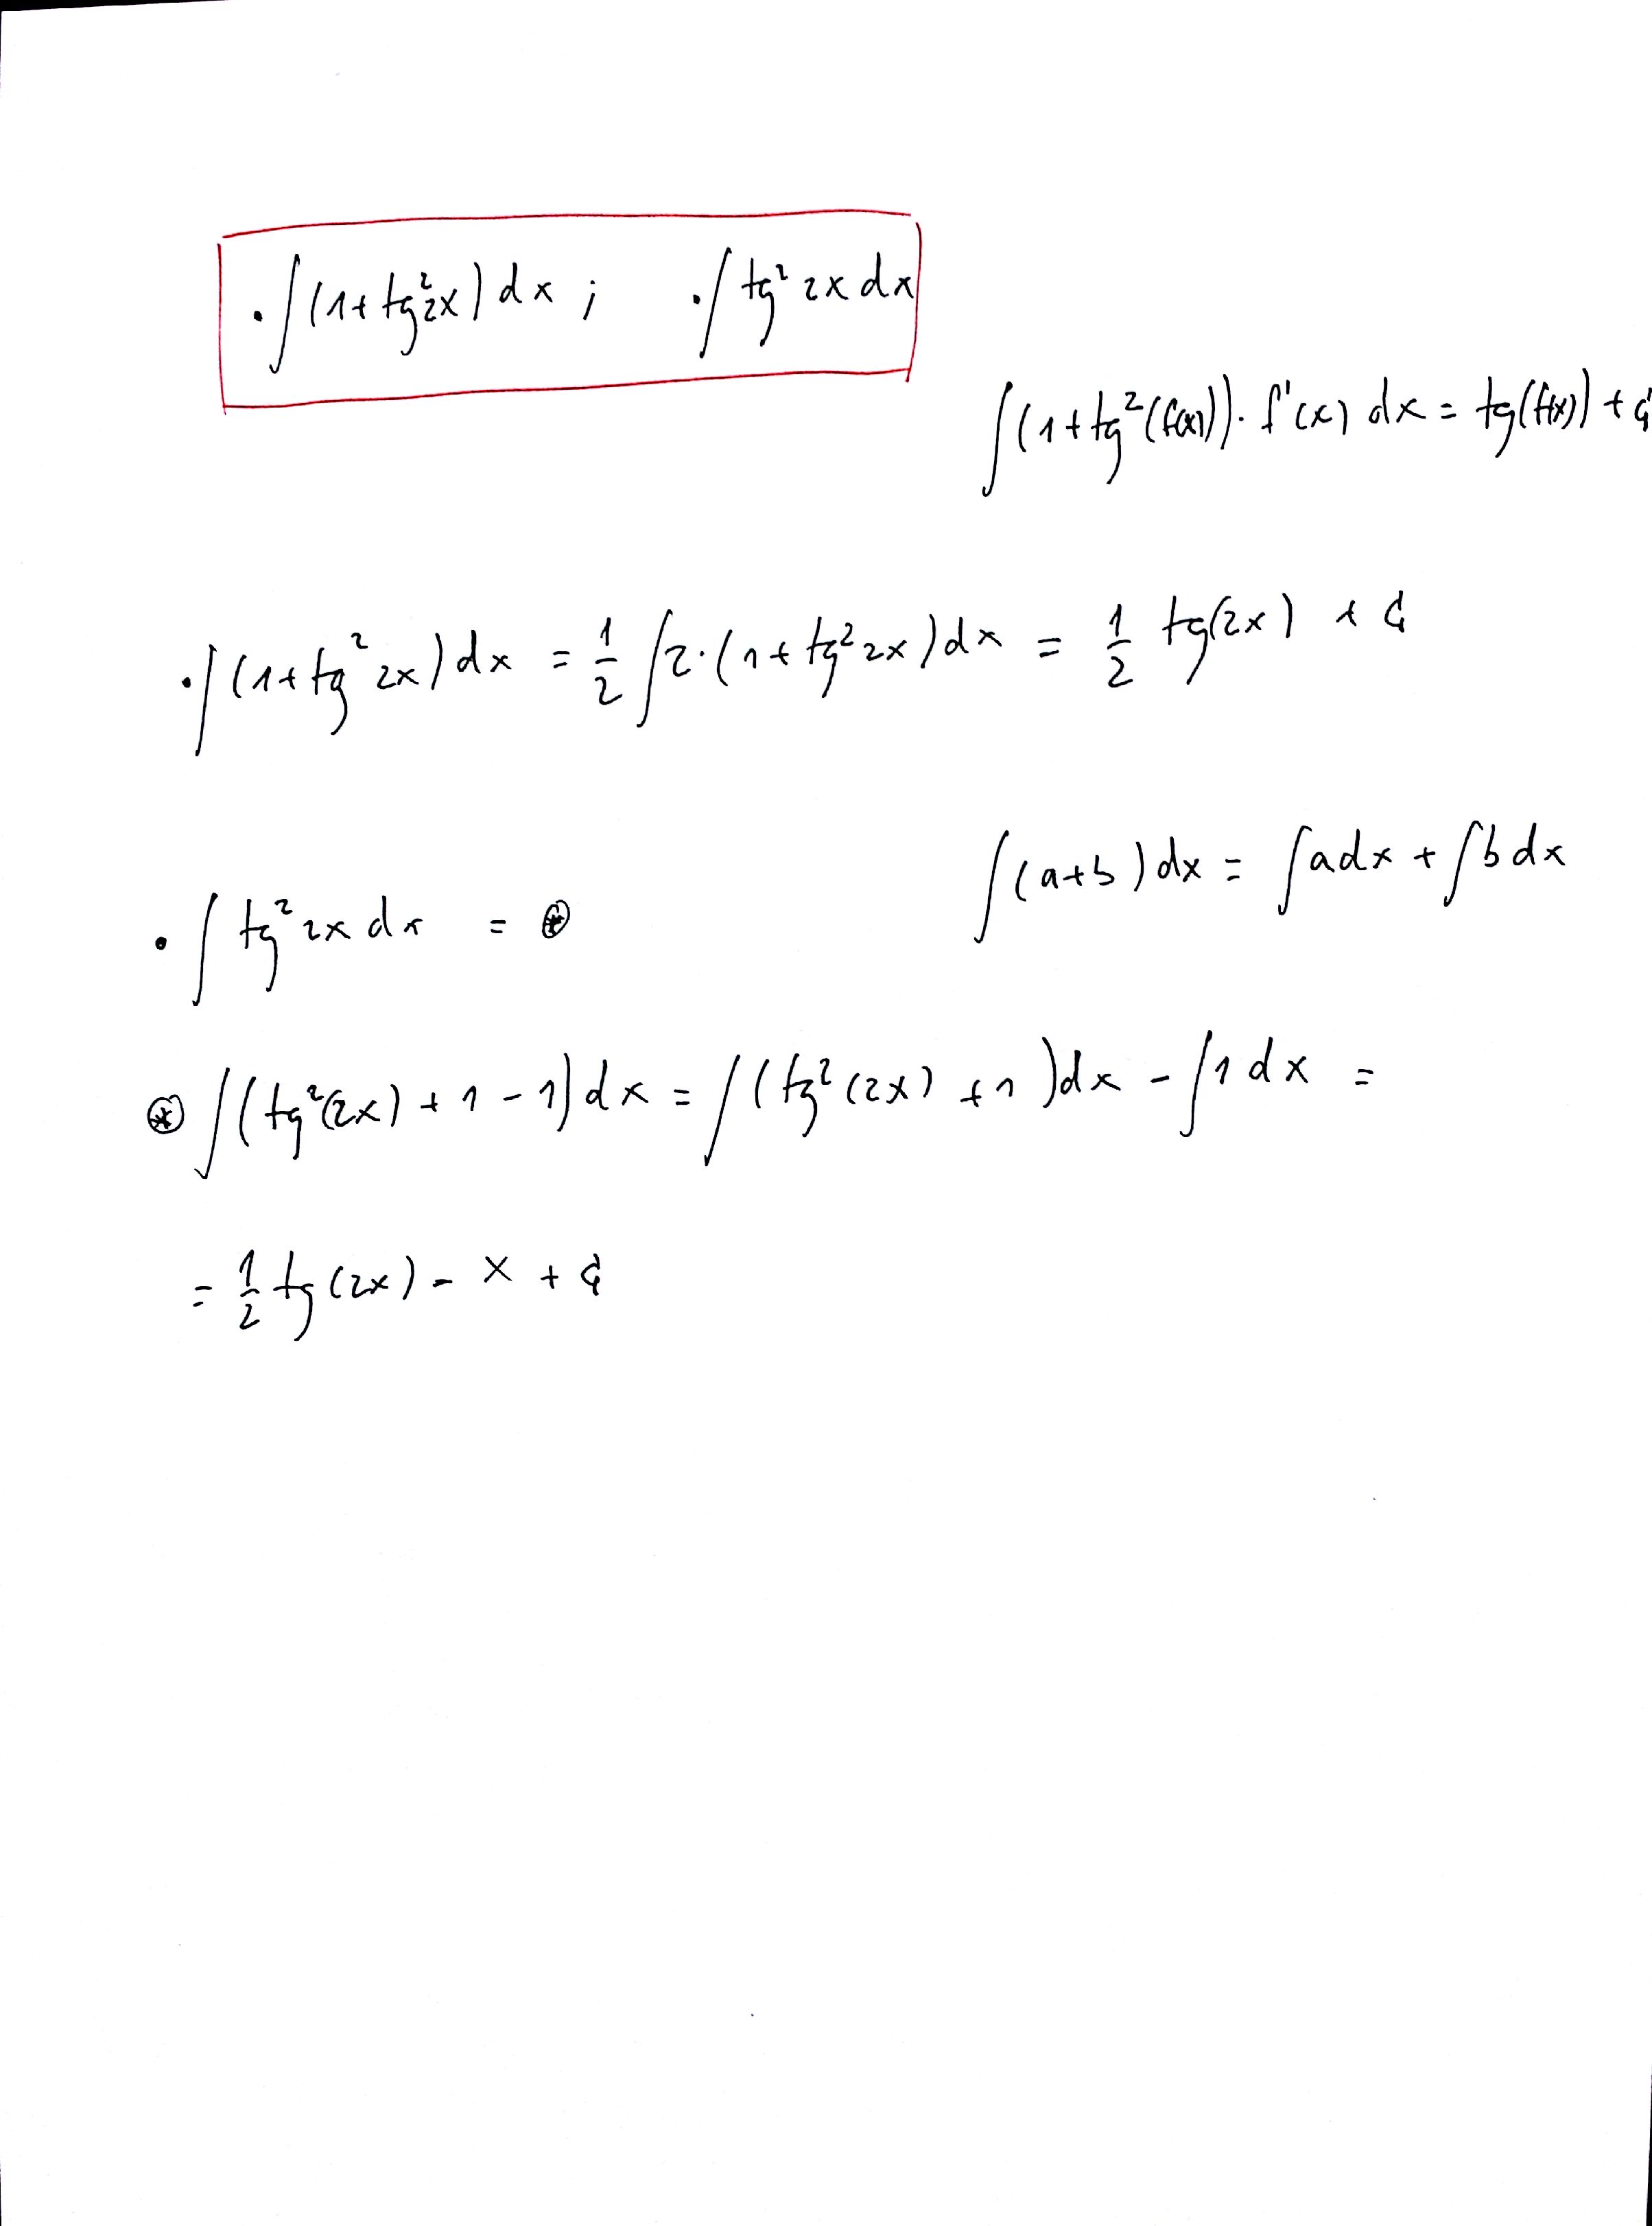 · ∫(1+tg²2x)dx ; · ∫tg²2xdx
∫(1+tg²(f(x)))·f'(x)dx = tg(f(x)) + C
· ∫(1+tg²2x)dx = 1/2 ∫2·(1+tg²2x)dx = 1/2 tg(2x) + C
∫(a+b)dx = ∫adx + ∫bdx
· ∫tg²2xdx = ⊛
⊛ ∫(tg²(2x)+1-1)dx = ∫(tg²(2x)+1)dx - ∫1dx =
= 1/2 tg(2x) - x + C